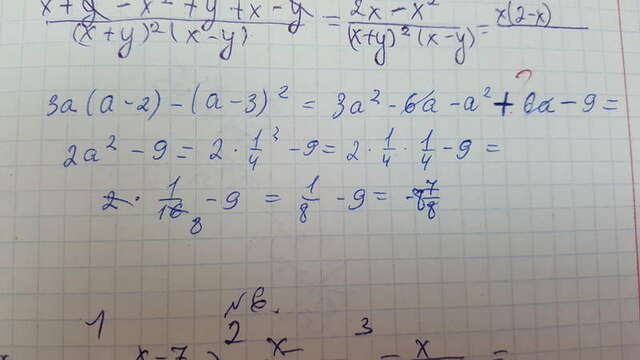 x + y - x² + y + x - y / (x+y)²(x-y) = 2x - x² / (x+y)²(x-y) = x(2-x)
?
3a(a-2) - (a-3)² = 3a² - 6a - a² + 6a - 9 =
2a² - 9 = 2 · 1/4² - 9 = 2 · 1/4 · 1/4 - 9 =
2 · 1/16 8 - 9 = 1/8 - 9 = -8 7/8
№6.
1 2 3
x-7) x - x =